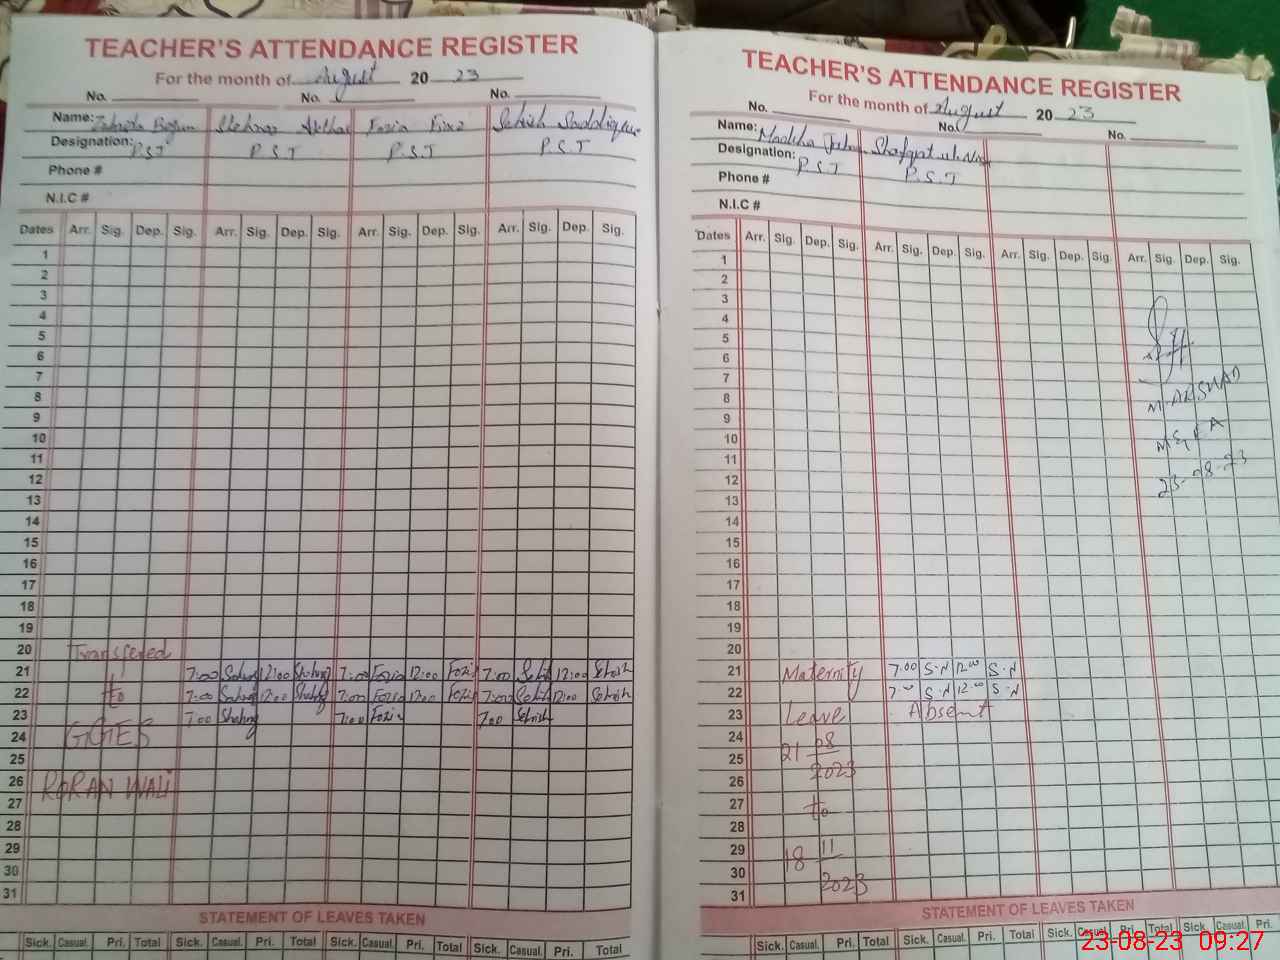 TEACHER'S ATTENDANCE REGISTER
For the month of August 20 23
No. No. No.
Name: Begum Shehnaz Akhtar Fozia Sehrish Saddique
Designation: P.S.T P.S.T P.S.T P.S.T
Phone #
N.I.C #
Dates Arr. Sig. Dep. Sig. Arr. Sig. Dep. Sig. Arr. Sig. Dep. Sig. Arr. Sig. Dep. Sig.
1
2
3
4
5
6
7
8
9
10
11
12
13
14
15
16
17
18
19
20 Transfered
21 7:00 12:00 7:00 Fozia 12:00 Fozia 7:00 12:00 Sehrish
22 to 7:00 12:00 7:00 Fozia 12:00 Fozia 7:00 12:00 Sehrish
23 7:00 7:00 Fozia 7:00 Sehrish
24 GGES
25
26 RORAN WALI
27
28
29
30
31
STATEMENT OF LEAVES TAKEN
Sick. Casual. Pri. Total Sick. Casual. Pri. Total Sick. Casual. Pri. Total Sick. Casual. Pri. Total
TEACHER'S ATTENDANCE REGISTER
For the month of August 20 23
No. No. No.
Name: Madiha
Designation: P.S.T P.S.T
Phone #
N.I.C #
Dates Arr. Sig. Dep. Sig. Arr. Sig. Dep. Sig. Arr. Sig. Dep. Sig. Arr. Sig. Dep. Sig.
1
2
3
4
5
6
7
8 M. ARSHAD
9
10 MEA
11
12 23-08-23
13
14
15
16
17
18
19
20
21 Maternity 7:00 S.N 12:00 S.N
22 7:00 S.N 12:00 S.N
23 Leave Absent
24
25 21 08 2023
26
27 to
28
29 18 11
30 2023
31
STATEMENT OF LEAVES TAKEN
Sick. Casual. Pri. Total Sick. Casual. Pri. Total Sick. Casual. Pri. Total Sick. Casual. Pri. Total
23-08-23 09:27